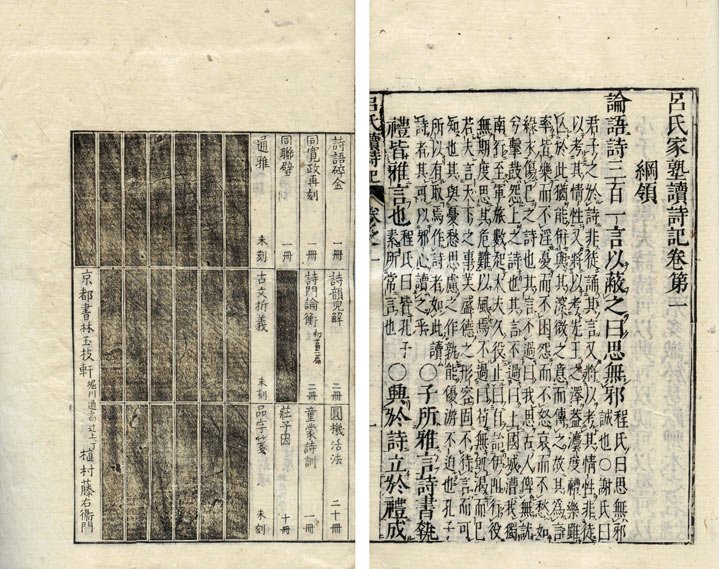 呂氏家塾讀詩記卷第一
綱領
論語詩三百一言以蔽之曰思無邪 程氏曰思無邪
誠也○謝氏曰
君子之於詩非徒誦其言又將以考其情性非徒
以考其情性又將以考先王之澤蓋灋度禮樂雖
亾於此猶能併與其深微之意而傳之故其為言
率皆樂而不淫憂而不困怨而不怒哀而不愁如
綠衣傷己之詩也其言不過曰我思古人俾無訧
兮擊鼓怨上之詩也其言不過曰土國城漕我獨
南行至軍旅數起大夫久役止曰自詒伊阻行役
無期度思其危難以風焉不過曰苟無飢渴而已
若夫言天下之事美盛德之形容固不待言而可
知也其與憂愁思慮之作孰能優游不迫也孔子
所以有取焉作詩者如此讀
詩者其可以邪心讀之乎
○子所雅言詩書執
禮皆雅言也 程氏曰皆孔子
素所常言也 ○興於詩立於禮成
呂氏讀詩記 卷之一
詩語碎金 一冊
詩韻兒解 二冊
圓機活法 二十冊
同寬政再刻 一冊
詩門論衡 初首二篇 二冊
童蒙詩訓 一冊
同聯壁 一冊
莊子因 十冊
通雅 未刻
古文折義 未刻
品字箋 未刻
京都書林玉枝軒 堀川通高辻上ル丁 植村藤右衛門